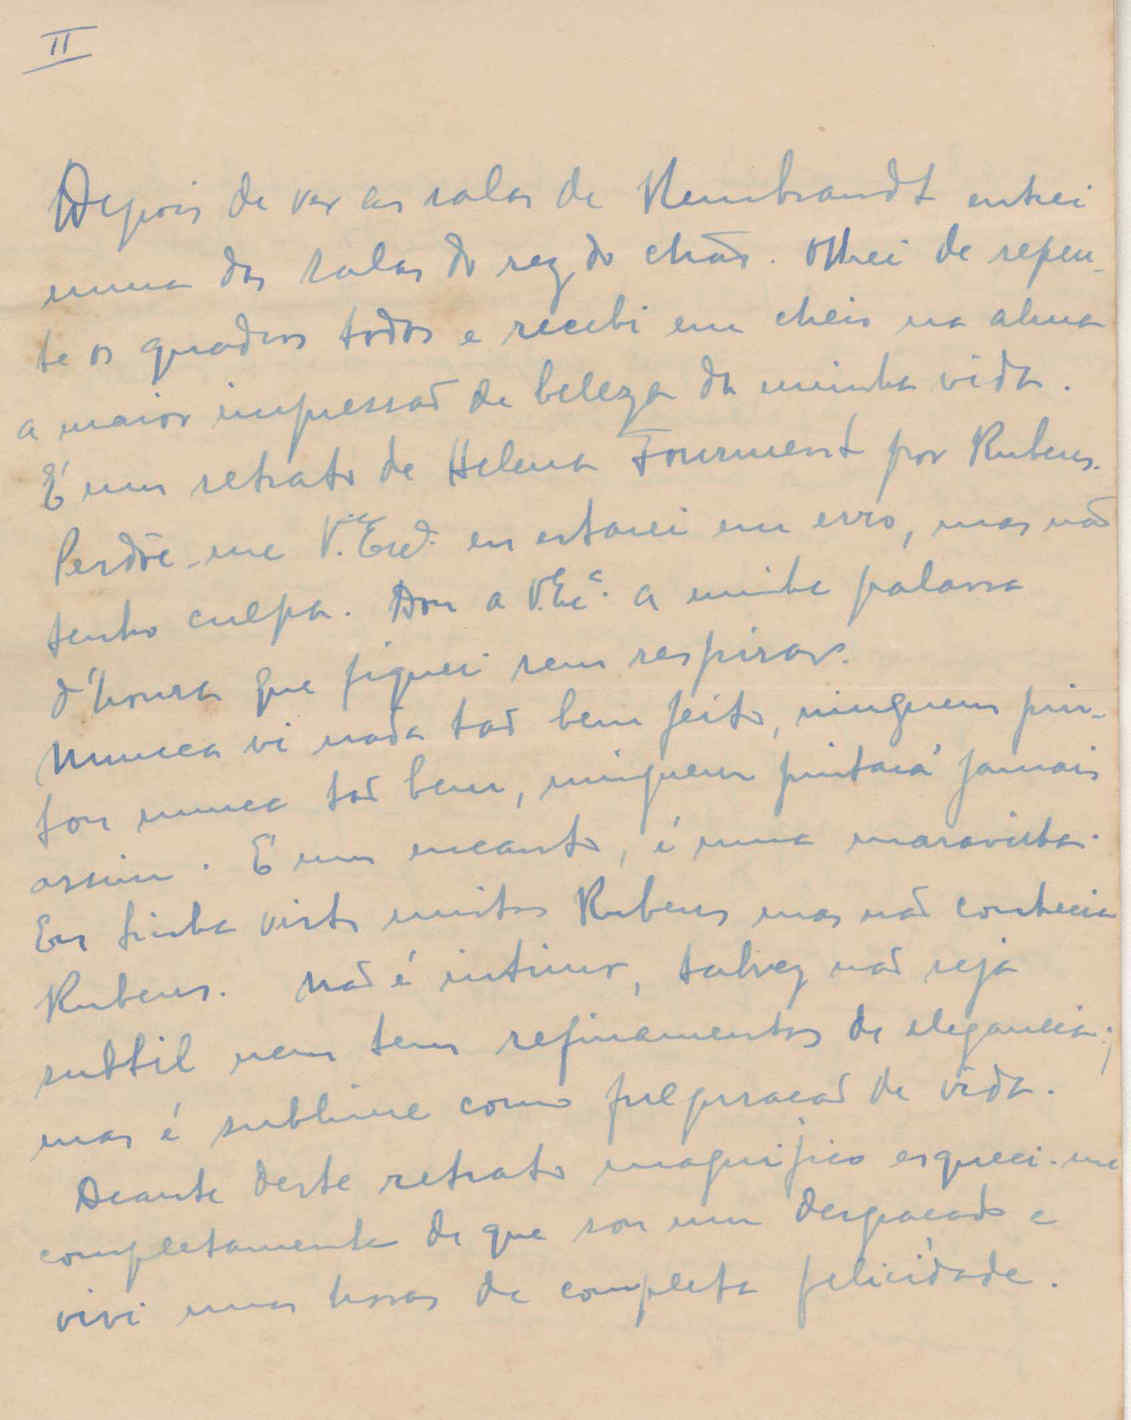 II
Depois de ver as salas de Rembrandt entrei
numa das salas do rez do chão. Olhei de repen-
te os quadros todos e recebi em cheio na alma
a maior impressão de beleza da minha vida.
É um retrato de Helena Fourment por Rubens.
Perdõe-me V. Exª. eu estarei em erro, mas não
tenho culpa. Dou a V. Exª. a minha palavra
d'honra que fiquei sem respirar.
Nunca vi nada tão bem feito, ninguem pin-
tou nunca tão bem, ninguem pintará jamais
assim. É um encanto, é uma maravilha.
Eu tinha visto muitos Rubens mas não conhecia
Rubens. Não é intimo, talvez não seja
subtil nem tem refinamentos de elegancia;
mas é sublime como fulguração de vida.
Deante deste retrato magnifico esqueci-me
completamente de que sou um desgraçado e
vivi umas horas de completa felicidade.